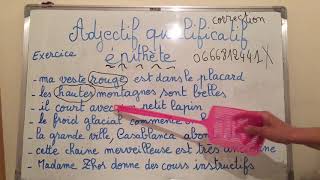 correction
Adjectif qualificatif
épithète 0666812441
Exercice
- ma veste rouge est dans le placard
- les hautes montagnes sont belles
- il court avec petit lapin
- le froid glacial commence
- la grande ville, Casablanca
- cette chaine merveilleuse est très ancienne
- Madame Zhos donne des cours instructifs